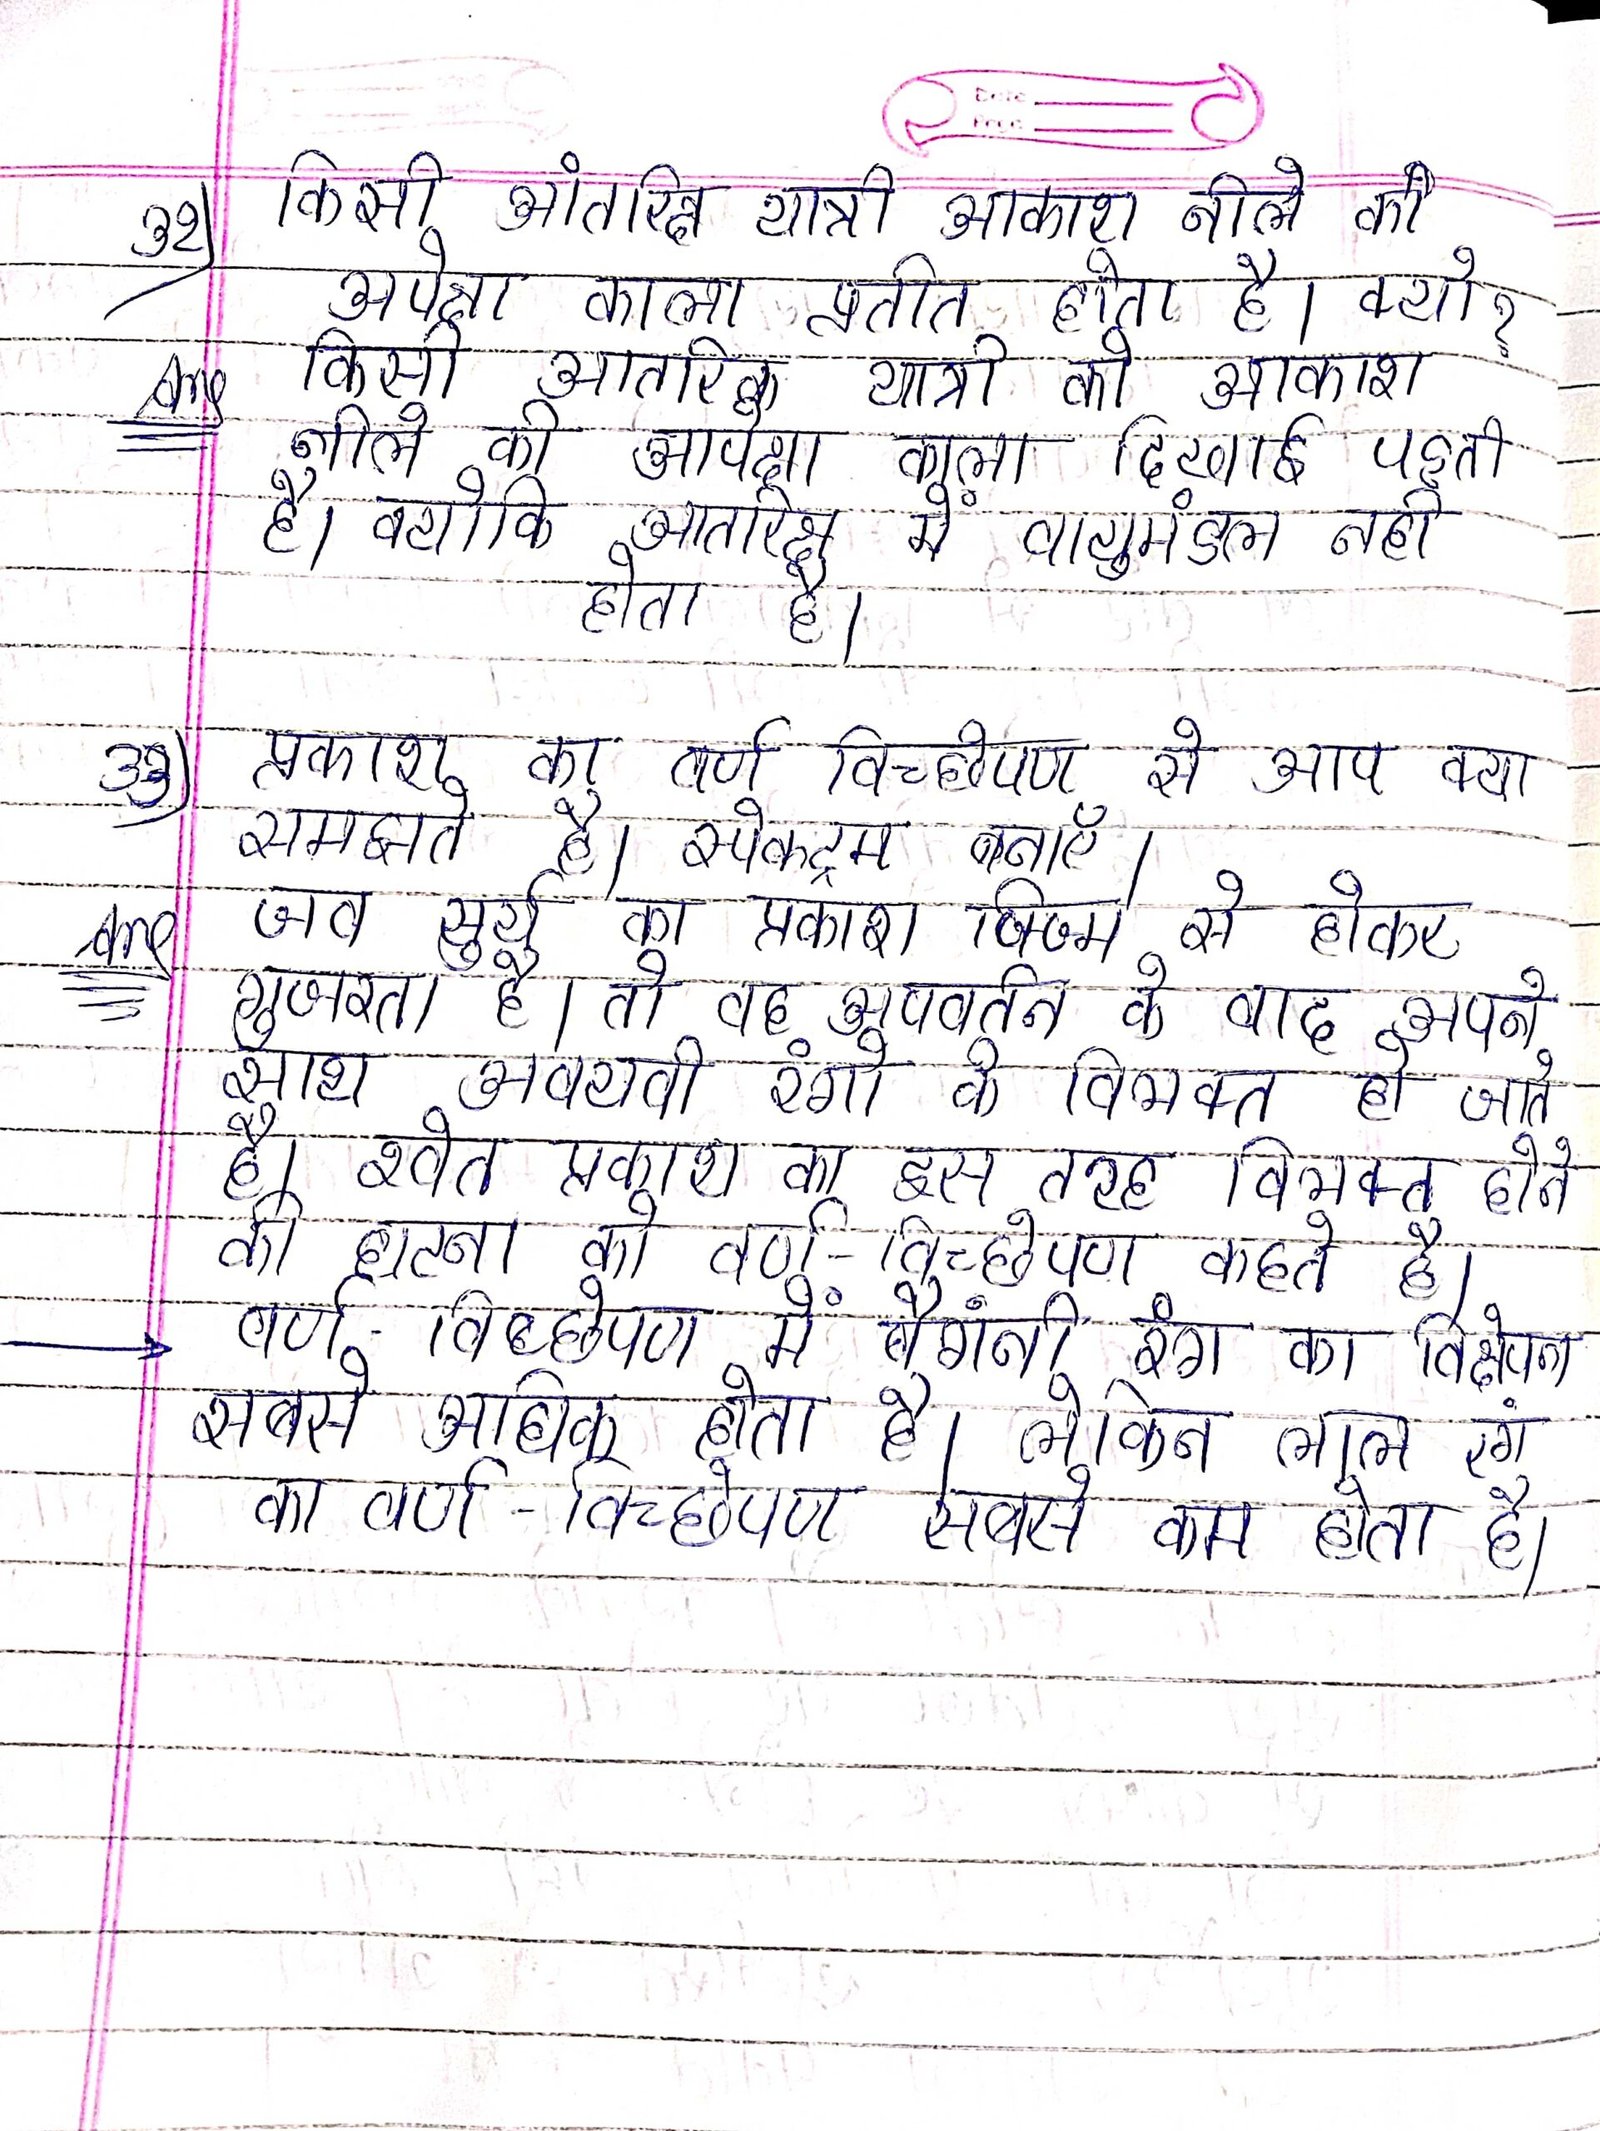 Date
Page
32) किसी आंतरिक्ष यात्री आकाश नीले की
अपेक्षा काला प्रतीत होता है। क्यो?
Ans किसी आतरिक्ष यात्री को आकाश
नीले की आपेक्षा काला दिखाई पड़ती
है। क्योकि आतरिक्ष में वायुमंडल नही
होता है।
33) प्रकाश का वर्ण विच्छेपण से आप क्या
समझते है। स्पेकट्रम बनाएँ।
Ans जब सुर्य का प्रकाश प्रिज्म से होकर
गुजरता है। तो वह अपवर्तन के बाद अपने
साथ अवयवी रंगो के विभक्त हो जाते
है। श्वेत प्रकाश का इस तरह विभक्त होने
की घटना को वर्ण-विच्छेपण कहते है।
→ वर्ण-विच्छेपण में बैगंनी रंग का विक्षेपन
सबसे अधिक होता है। लेकिन लाल रंग
का वर्ण-विच्छेपण सबसे कम होता है।